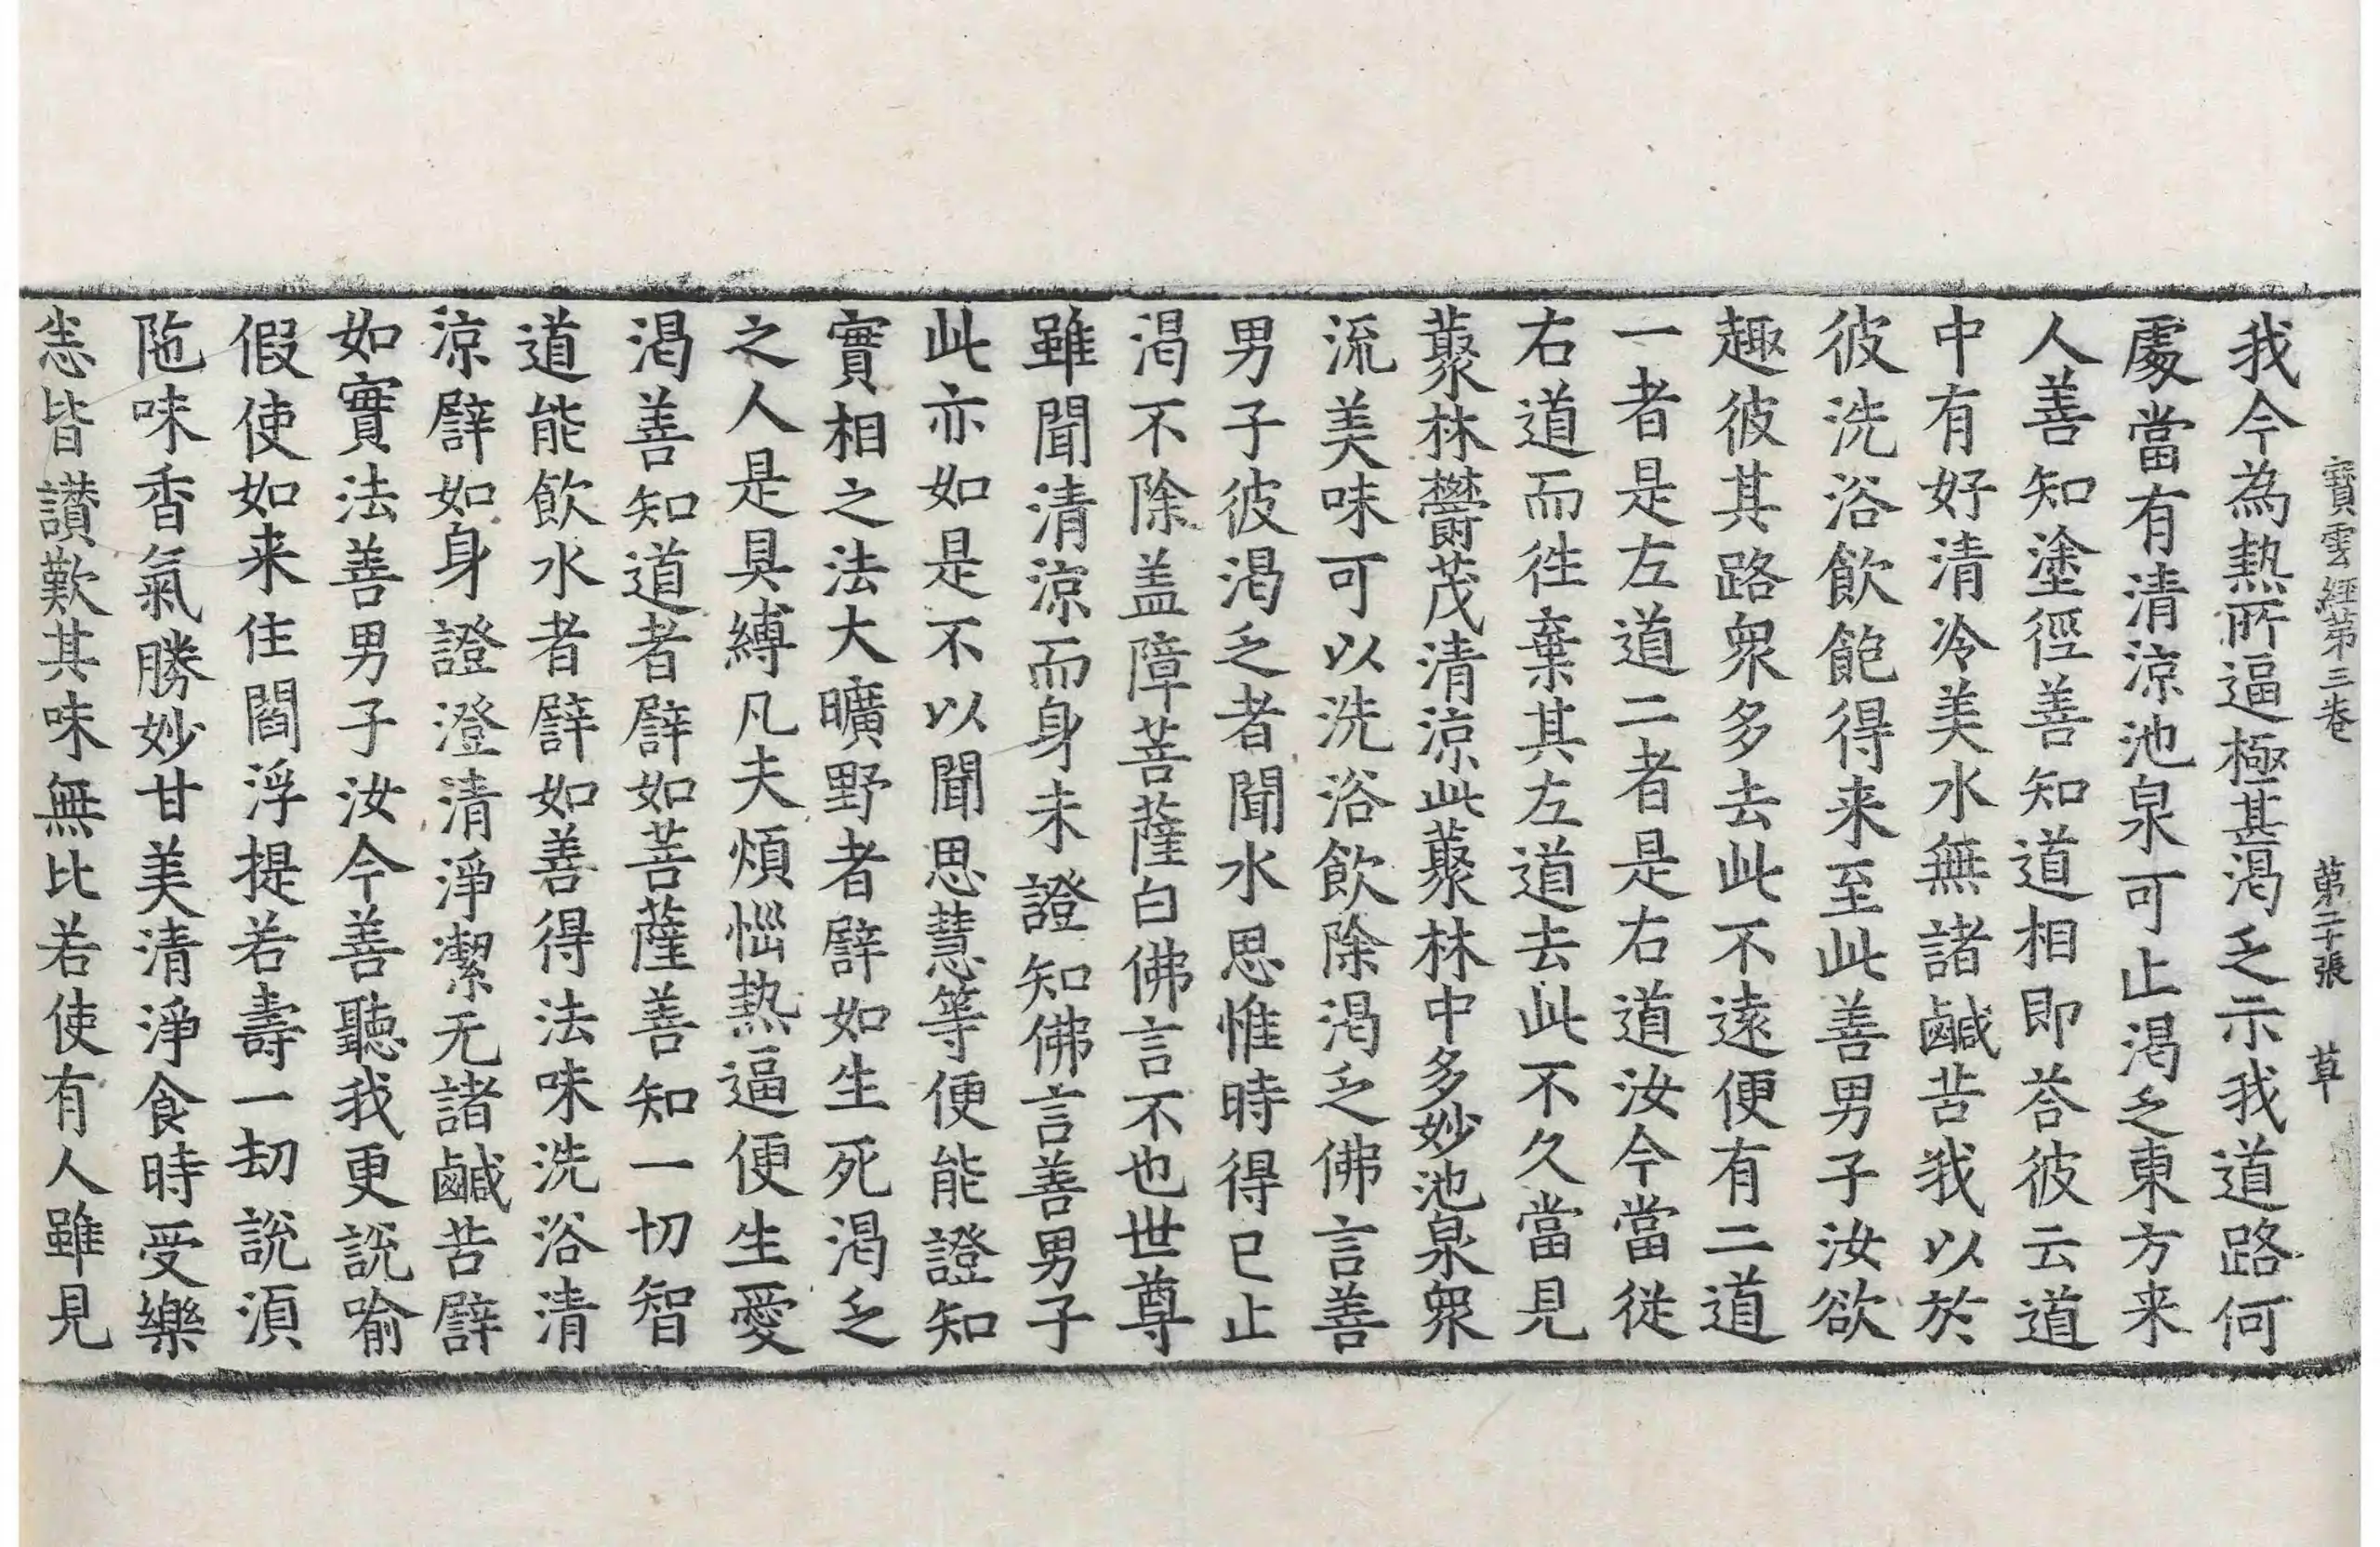 寶雲經第三卷 第二十張 草
我今為熱所逼極甚渴乏示我道路何
處當有清涼池泉可止渴乏東方来
人善知塗徑善知道相即荅彼云道
中有好清冷美水無諸鹹苦我以於
彼洗浴飲飽得来至此善男子汝欲
趣彼其路衆多去此不遠便有二道
一者是左道二者是右道汝今當從
右道而徃棄其左道去此不久當見
藂林欝茂清涼此藂林中多妙池泉衆
流美味可以洗浴飲除渴乏佛言善
男子彼渴乏者聞水思惟時得已止
渴不除盖障菩薩白佛言不也世尊
雖聞清涼而身未證知佛言善男子
此亦如是不以聞思慧等便能證知
實相之法大曠野者譬如生死渴乏
之人是具縛凡夫煩惱熱逼便生愛
渴善知道者譬如菩薩善知一切智
道能飲水者譬如善得法味洗浴清
涼譬如身證澄清淨潔无諸鹹苦譬
如實法善男子汝今善聽我更説喻
假使如来住閻浮提若壽一劫説湏
陁味香氣勝妙甘美清淨食時受樂
恙皆讃歎其味無比若使有人雖見